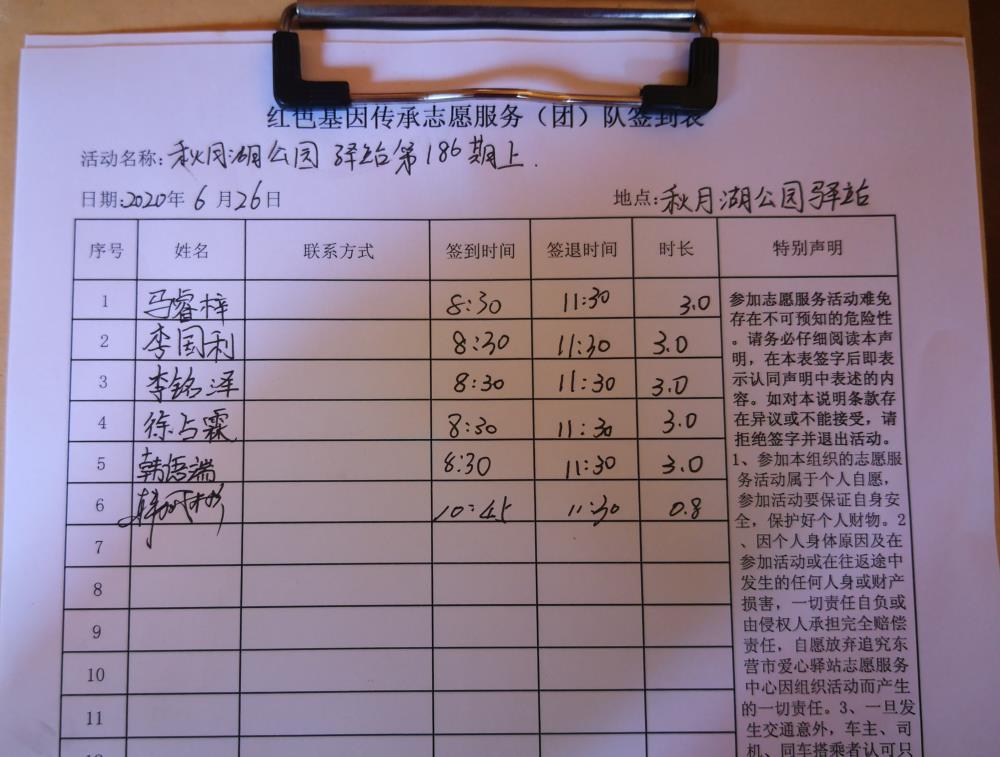 红色基因传承志愿服务（团）队签到表
活动名称:秋月湖公园 驿站第186期上.
日期:2020年6月26日 地点:秋月湖公园驿站
序号 姓名 联系方式 签到时间 签退时间 时长 特别声明
1 马睿梓 8:30 11:30 3.0
2 李国利 8:30 11:30 3.0
3 李铭泽 8:30 11:30 3.0
4 徐占霖 8:30 11:30 3.0
5 韩语端 8:30 11:30 3.0
6 10:45 11:30 0.8
7
8
9
10
11
参加志愿服务活动难免
存在不可预知的危险性
。请务必仔细阅读本声
明，在本表签字后即表
示认同声明中表述的内
容。如对本说明条款存
在异议或不能接受，请
拒绝签字并退出活动。
1、参加本组织的志愿服
务活动属于个人自愿，
参加活动要保证自身安
全，保护好个人财物。2
、因个人身体原因及在
参加活动或在往返途中
发生的任何人身或财产
损害，一切责任自负或
由侵权人承担完全赔偿
责任，自愿放弃追究东
营市爱心驿站志愿服务
中心因组织活动而产生
的一切责任。3、一旦发
生交通意外，车主、司
机、同车搭乘者认可只